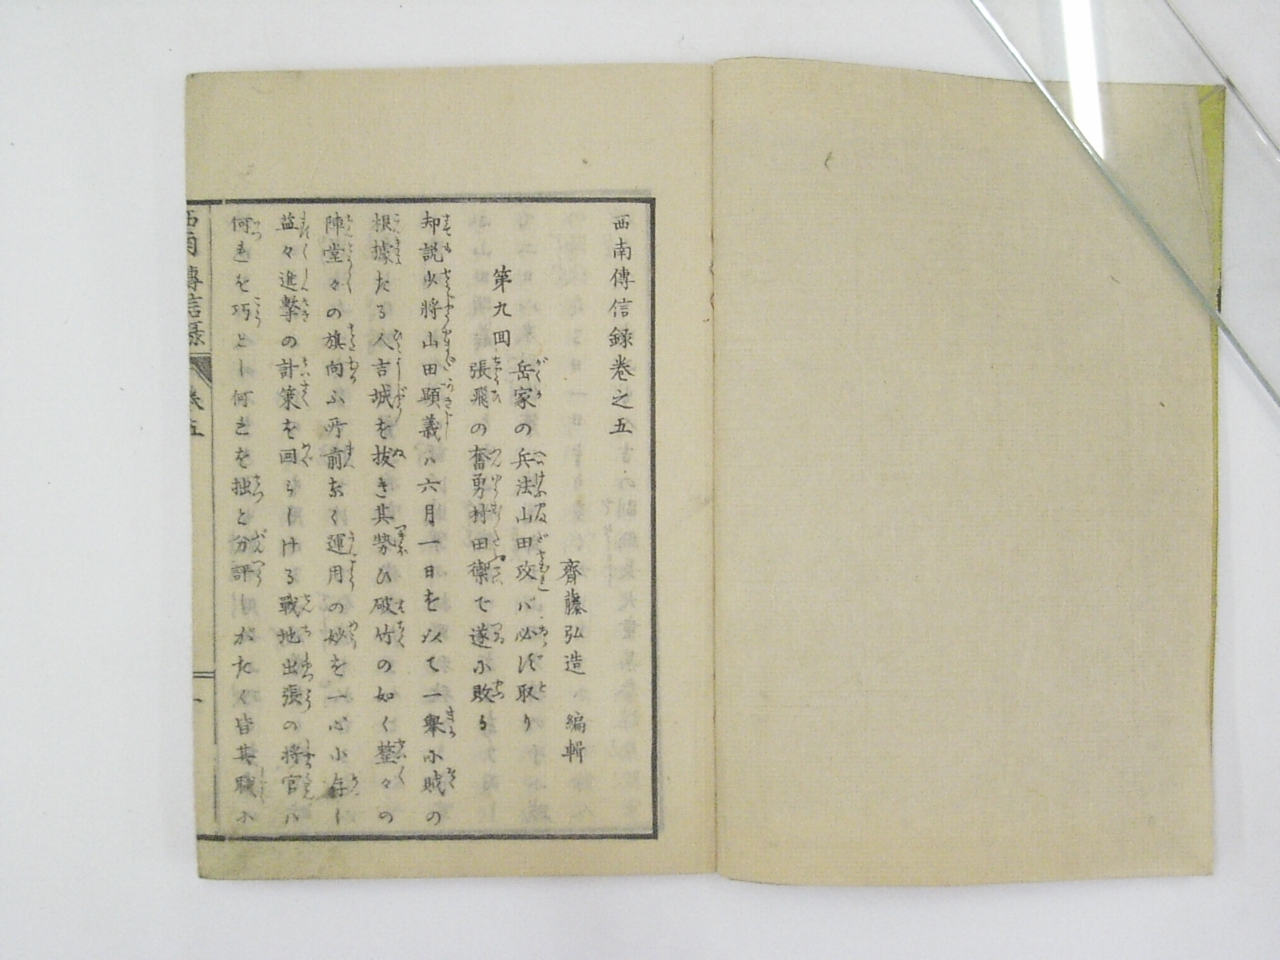 西南傳信録巻之五
齊藤弘造 編輯
第九回
岳家の兵法山田攻ハ必ず取り
張飛の奮勇村田禦で遂に敗る
却説少將山田顕義ハ六月一日を以て一擧に賊の
根據たる人吉城を抜き其勢ひ破竹の如く整々の
陣堂々の旗向ふ所前なく運用の妙を一心に存し
益々進撃の計策を回らしける戰地出張の将官ハ
何れを巧とし何れを拙と分評しがたく皆其職に
西南傳信録 巻五 一